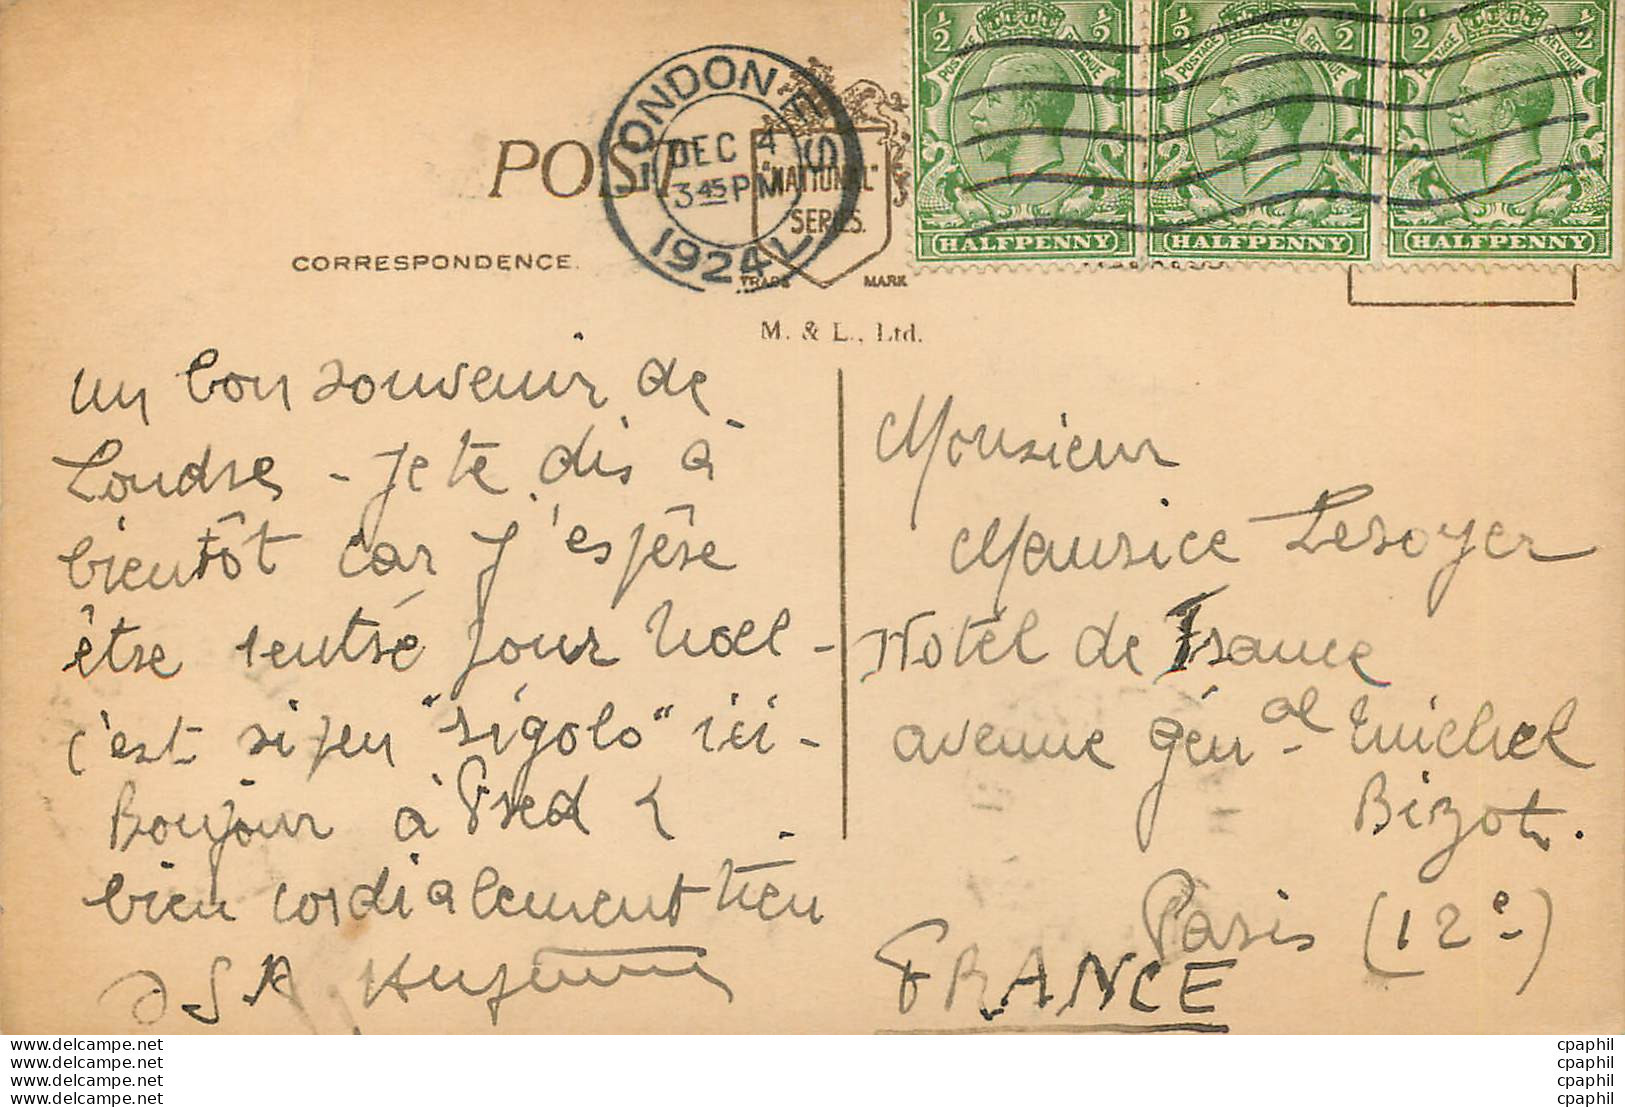 POST
CORRESPONDENCE.
LONDON F.S
DEC 4
3 45 PM
1924
"NATIONAL"
SERIES.
TRADE MARK
M. & L., Ltd.
1/2 1/2 1/2 1/2 1/2 1/2
POSTAGE REVENUE POSTAGE REVENUE POSTAGE REVENUE
HALFPENNY HALFPENNY HALFPENNY
un bon souvenir de
Londres - Je te dis à
bientôt car j'espère
être rentré pour Noel -
c'est si peu "rigolo" ici -
Bonjour à Fred &
bien cordialement tien
Monsieur
Maurice Lesoyer
Hotel de France
avenue génal Michel
Bizot.
Paris (12e)
FRANCE
www.delcampe.net
www.delcampe.net
www.delcampe.net
www.delcampe.net
cpaphil
cpaphil
cpaphil
cpaphil